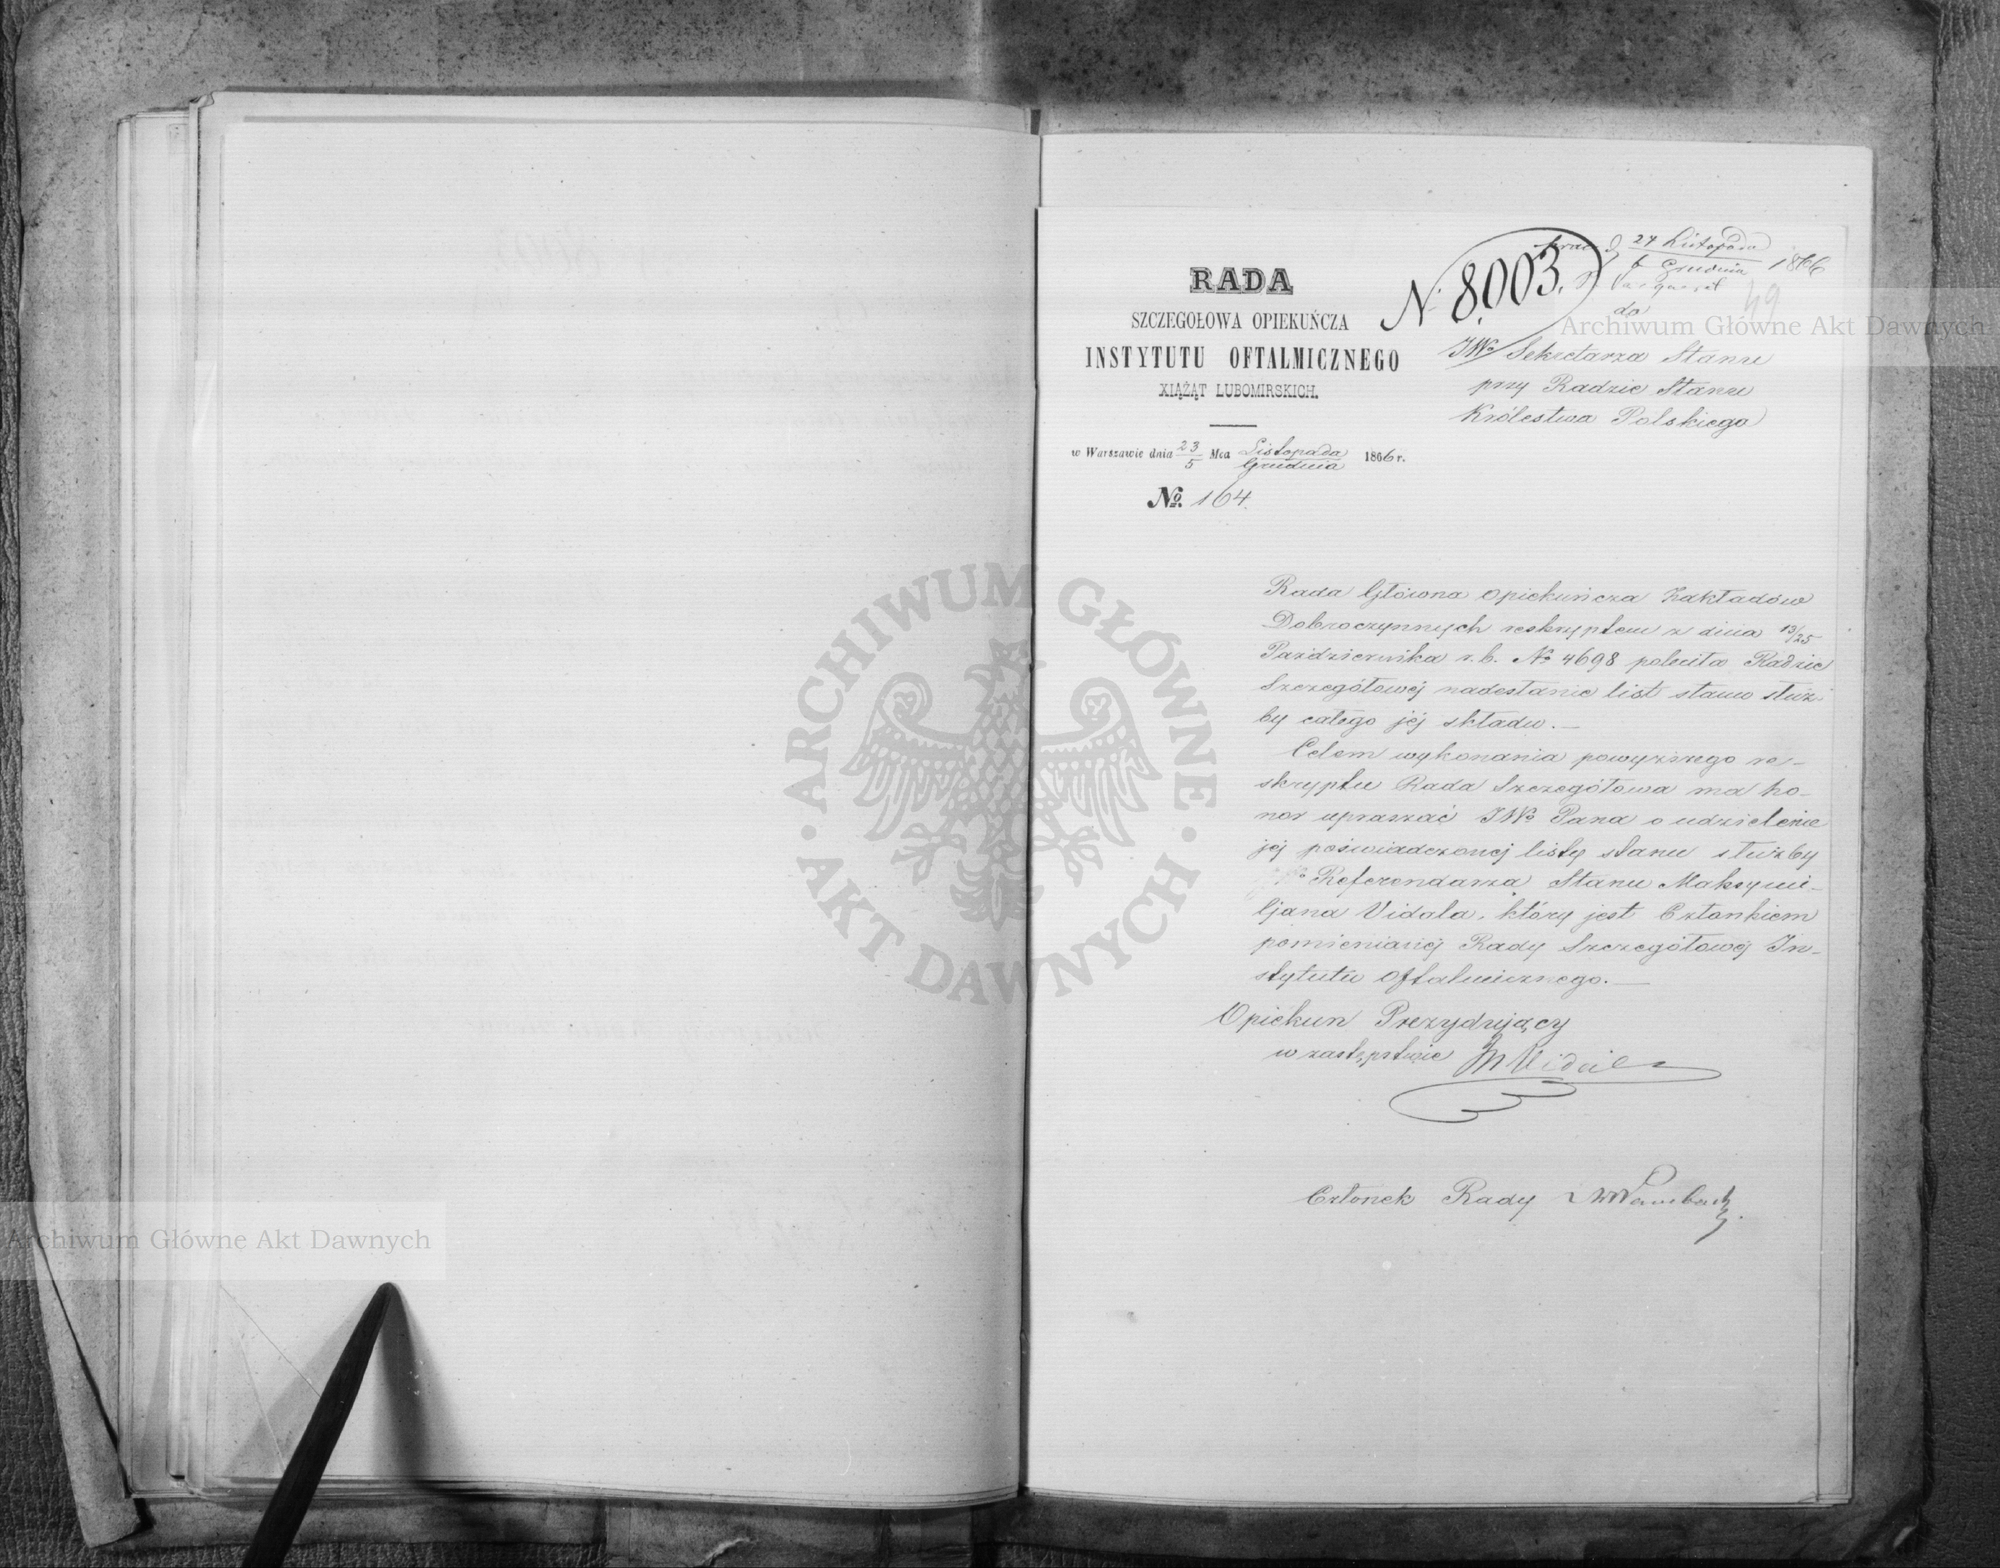 RADA
SZCZEGOŁOWA OPIEKUŃCZA
INSTYTUTU OFTALMICZNEGO
XIĄŻĄT LUBOMIRSKICH.
w Warszawie dnia 23/5 Mca Listopada/Grudnia 1866 r.
No. 164.
N. 8003.
24 Listopada
6 Grudnia 1866
49
do
JWo Sekretarza Stanu
przy Radzie Stanu
Królestwa Polskiego
Rada Główna Opiekuńcza Zakładów
Dobroczynnych reskryptem z dnia 13/25
Października r.b. No 4698 poleciła Radzie
Szczegółowéj nadesłanie list stanu służ-
by całego jéj składu.—
Celem wykonania powyższego re-
skryptu Rada Szczegółowa ma ho-
nor upraszać JWo Pana o udzielenie
jéj poświadczonej listy stanu służby
Referendarza Stanu Maksymi-
ljana Vidala, który jest Członkiem
pomienionéj Rady Szczegółowéj In-
stytutu Oftalmicznego.—
Opiekun Prezydujący
w zastępstwie M Vidal
Członek Rady
Archiwum Główne Akt Dawnych
Archiwum Główne Akt Dawnych
ARCHIWUM GŁÓWNE · AKT DAWNYCH ·